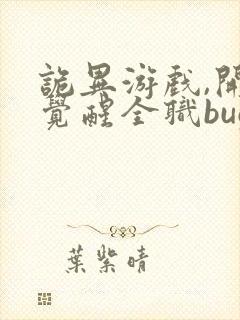 詭異游戏,開
覺醒全職bu
葉紫晴